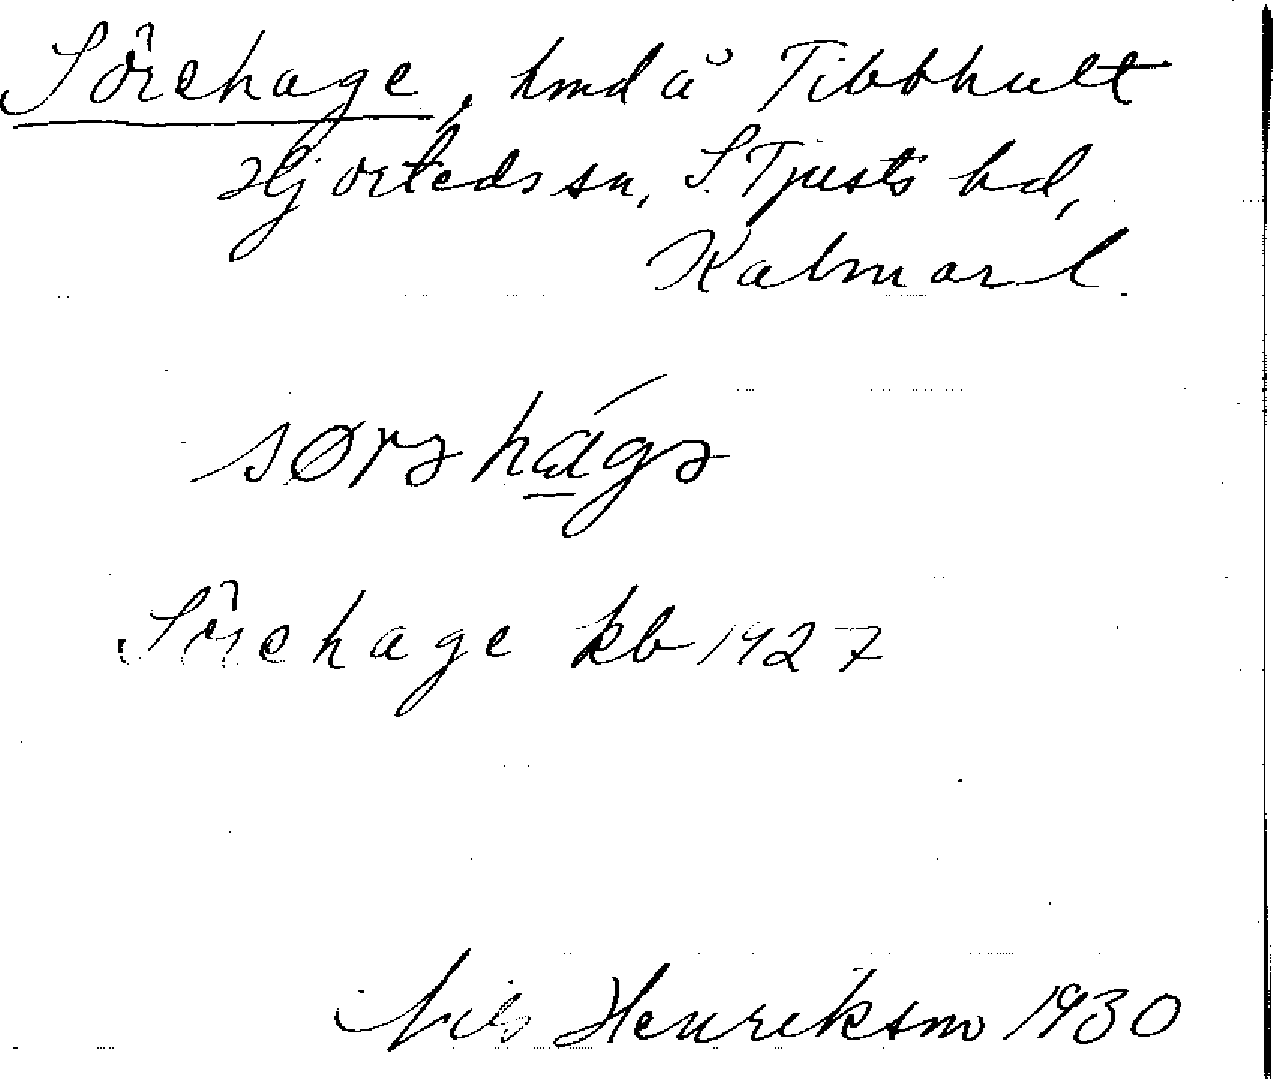 Sörehage, hmd å Tibbhult
Hjorteds sn, S. Tjusts hd,
Kalmar l.
sørə hágə
Sörehage kb 1927
Nils Henrikson 1930